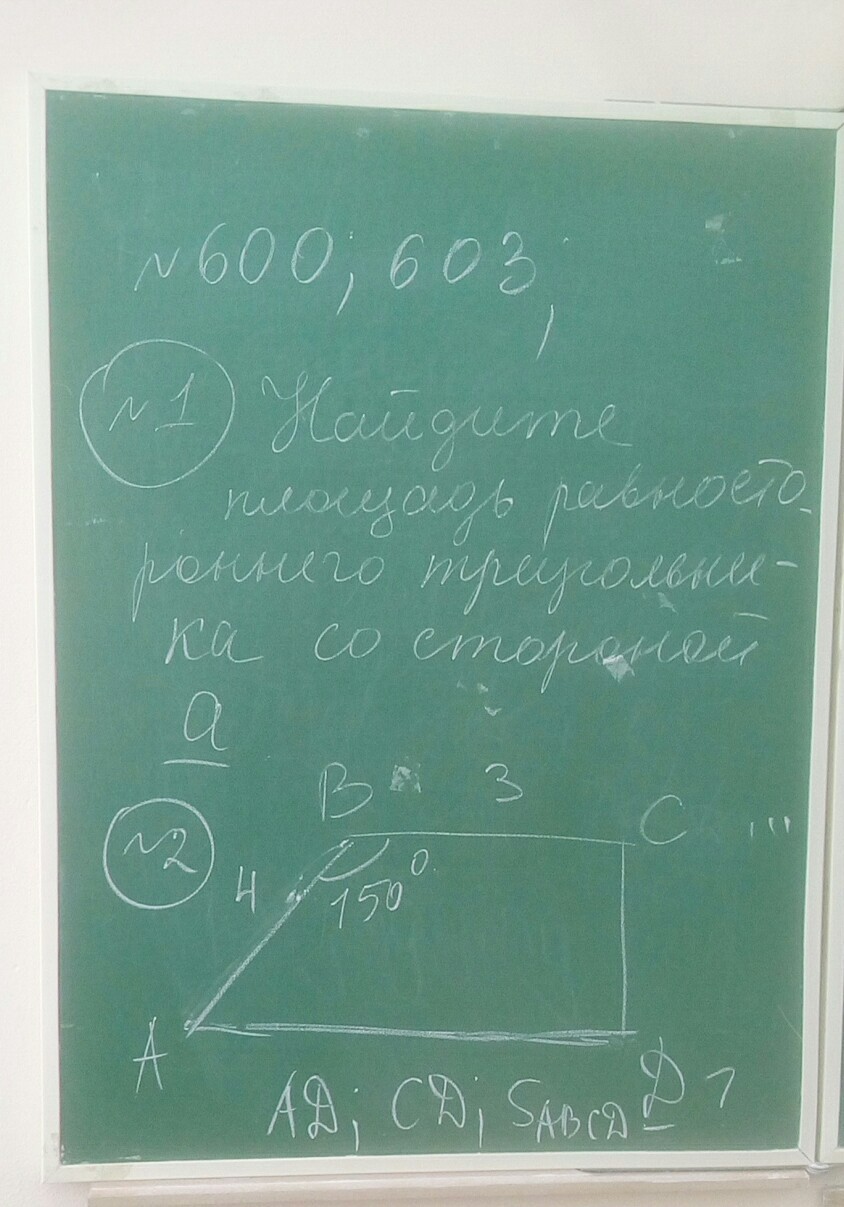 №600; 603;
№1 Найдите
площадь равносто-
роннего треугольни-
ка со стороной
a
№2
B 3 C
4 150°
A D
AD; CD; SABCD - ?